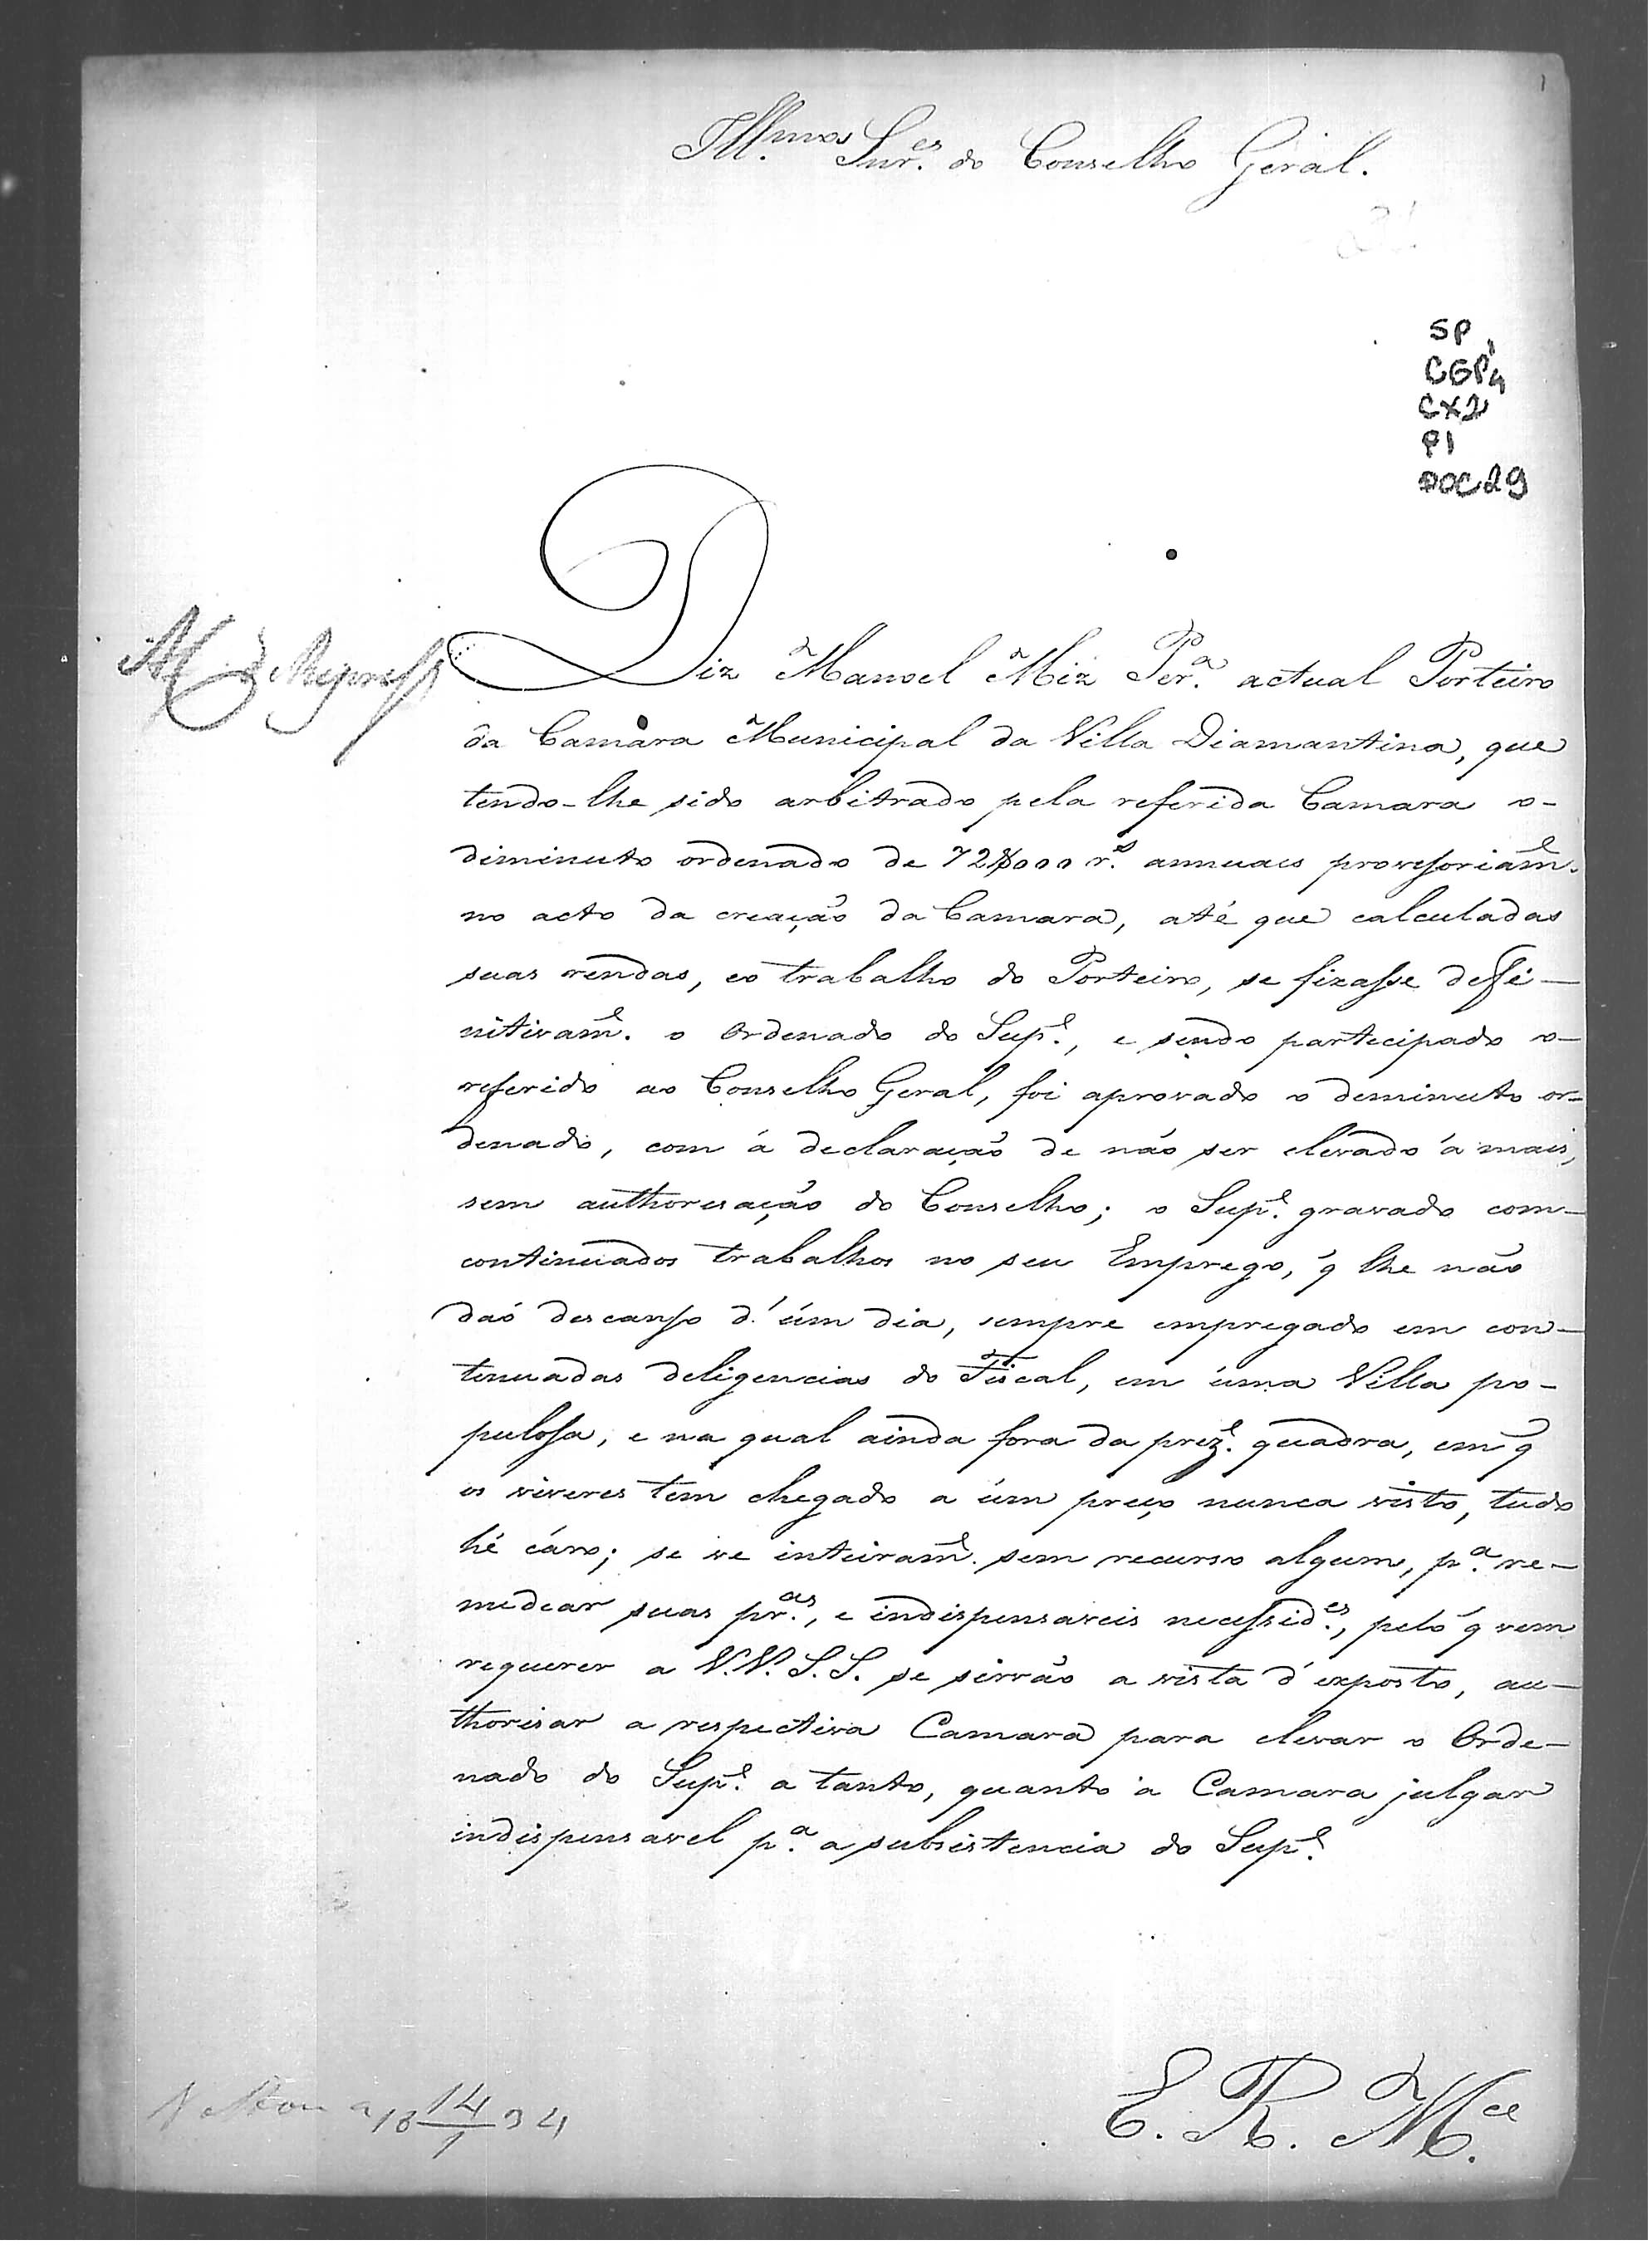 1
Ill.mos Snr.es do Conselho Geral.
SP
CGP1
CX2
P1
DOC29
Diz Manoel Miz Per.a actual Porteiro
da Camara Municipal da Villa Diamantina, que
tendo-lhe sido arbitrado pela referida Camara o-
diminuto ordenado de 72$000 r.s annuaes provesoriam.e
no acto da creação da Camara, até que calculadas
suas rendas, eo trabalho do Porteiro, se fixasse deffi-
nitivam.e o Ordenado do Sup.e, e sendo partecipado o-
referido ao Conselho Geral, foi aprovado o deminuto or-
denado, com á declaração de não ser elevado á mais,
sem authoresação do Conselho; o Sup.e gravado com-
continuados trabalhos no seu Emprego, q̃ lhe não
daó descanso d'úm dia, sempre empregado em con-
tenuadas deligencias do Fiscal, em úma Villa po-
pulosa, e na qual ainda fora da prez.e quadra, em q̃
os viveres tem chegado a úm preço nunca visto, tudo
hé cáro; se ve inteiram.e sem recurso algum, p.a re-
medear suas pr.as, e indispensaveis necessid.es, pelo q̃ vem
requerer a V.V. S.S. se sirvão a vista d'exposto, au-
thorisar a respectiva Camara para elevar o Orde-
nado do Sup.e a tanto, quanto a Camara julgar
indispensavel p.a a subsistencia do Sup.e
E. R. M.ce
14
18 34
1